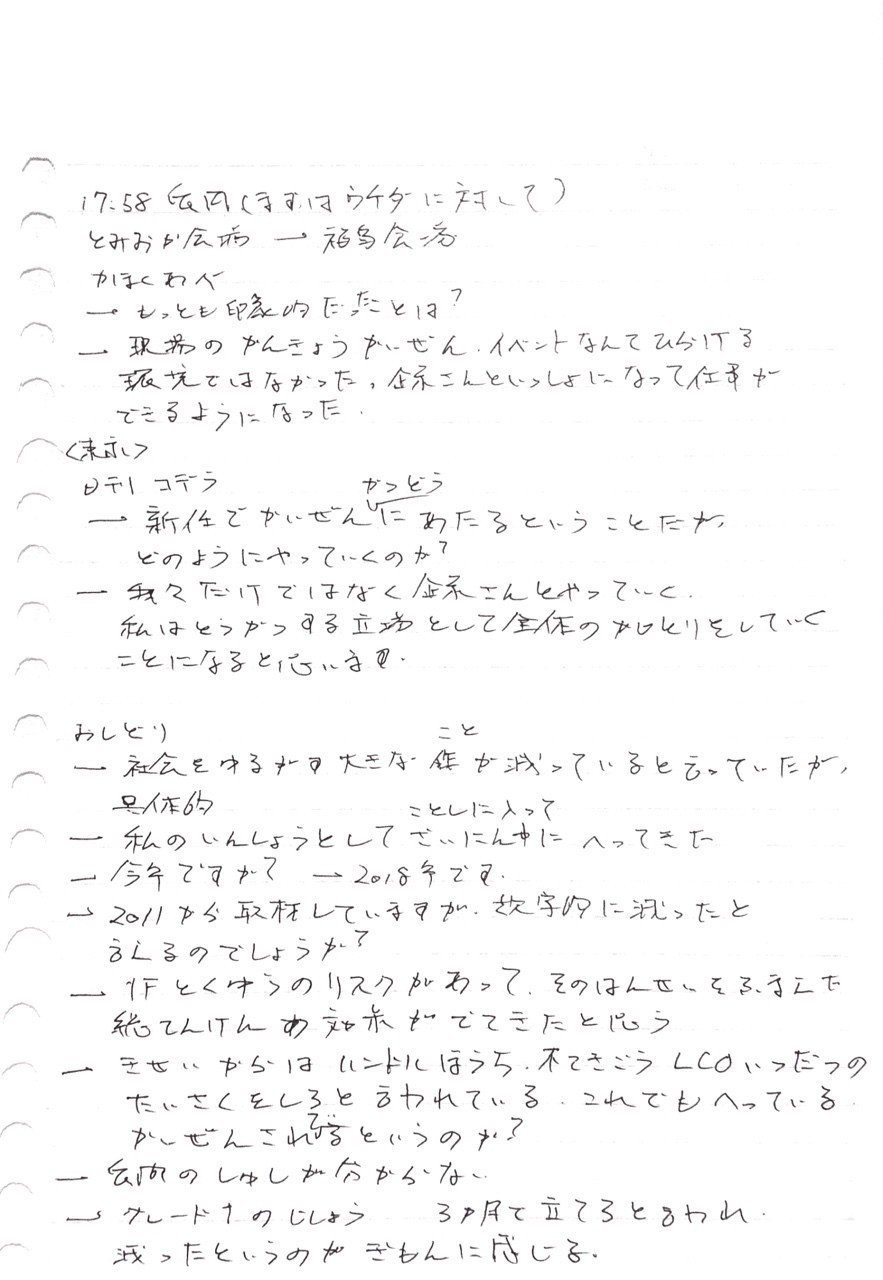 17:58 質問(まずはウチダに対して)
とみおか会場 → 福島会場
かほく
→ もっとも印象的だったことは?
→ 現場のかんきょうかいぜん、イベントなんてひらける
環境ではなかった、企業さんといっしょになって仕事が
できるようになった.
<東京>
日刊 コデラ かつどう
→ 新任でかいぜんにあたるということだが、
どのようにやっていくのか?
→ 我々だけではなく企業さんとやっていく.
私はとうかつする立場として全体のかじとりをしていく
ことになると思います.
おしどり こと
→ 社会をゆるがす大きな が減っていると言っていたが、
具体的 ことしに入って
→ 私のいんしょうとして ざいにん中に へってきた
→ 今年ですか? → 2018年です.
→ 2011から取材していますが、数字的に減ったと
言えるのでしょうか?
→ 1Fとくゆうのリスクがあって、そのはんせいをふまえた
総てんけんの効果がでてきたと思う
→ きせいからは ハンドルほうち、不てきごう LCOいつだつの
たいさくをしろと言われている. これでもへっている.
かいぜんされ というのか?
→ 質問のしゅしが分からない
→ グレード1のじしょう 3ヵ月で立てろと言われ.
減ったというのがぎもんに感じる.